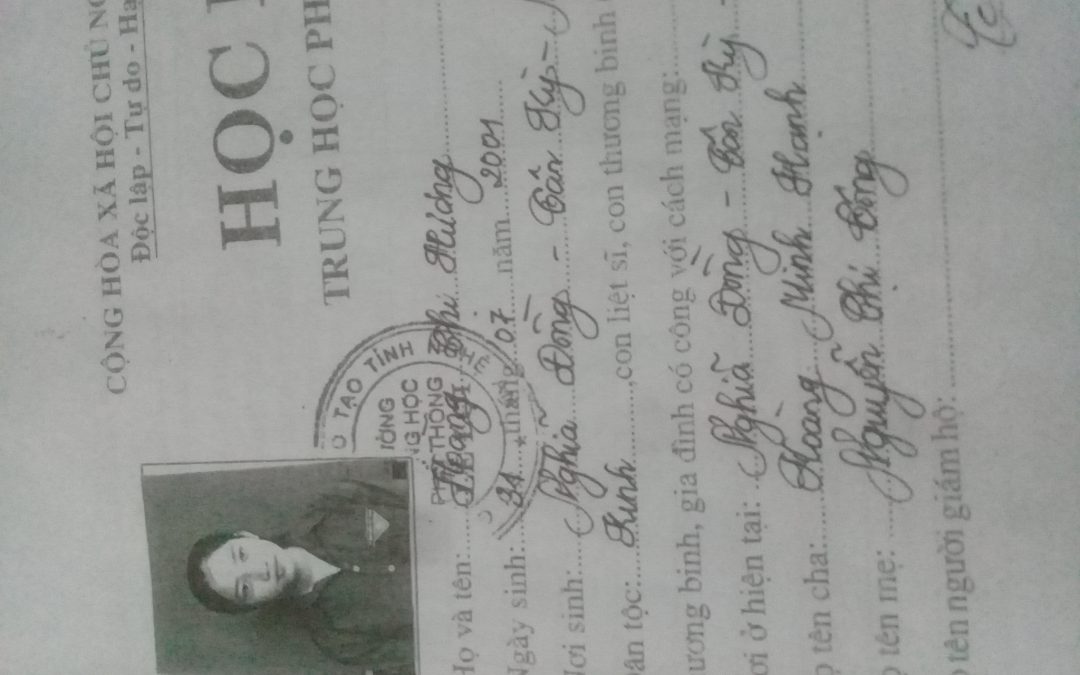 CỘNG HÒA XÃ HỘI CHỦ
Độc lập - Tự do -
HỌC
TRUNG HỌC
Họ và tên: Hoàng Thị Hương
Ngày sinh: 31 tháng 07 năm 2001
Nơi sinh: Nghĩa Đồng - Tân Kỳ -
Dân tộc: Kinh, con liệt sĩ, con thương binh
ương binh, gia đình có công với cách mạng:
ơi ở hiện tại: Nghĩa Đồng - Tân Kỳ -
ọ tên cha: Hoàng Minh Hạnh
ọ tên mẹ: Nguyễn Thị Đông
ọ tên người giám hộ:
TẠO TỈNH
HỌC
THÔNG